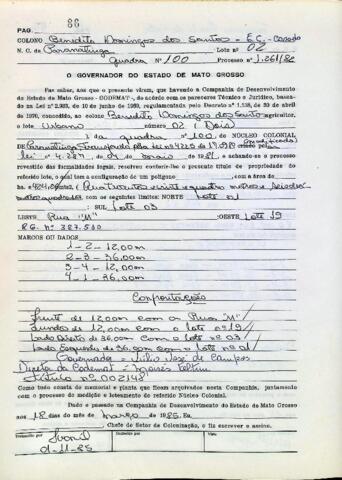 86
PAG.
COLONO Benedito Domingos dos Santos - E.C. - Casado
N. C. de Paranatinga Lote nº 02
Quadra nº 100 Processo nº 1.261/82
O GOVERNADOR DO ESTADO DE MATO GROSSO
Faz saber, aos que o presente virem, que havendo a Companhia de Desenvolvimento
do Estado de Mato Grosso - CODEMAT -, de acordo com os pareceres Técnico e Jurídico, basea-
do na Lei nº 2.983, de 10 de junho de 1969, regulamentada pelo Decreto nº 1.138, de 30 de abril
de 1970, concedido, ao colono Benedito Domingos dos Santos agricultor,
o lote Urbano número 02 (Dois)
da quadra nº 100, do NÚCLEO COLONIAL
de Paranatinga
lei nº 4.287, de de maio de 1981 e achando-se o processo
revestido das formalidades legais, resolveu conferir-lhe o presente título de propriedade do
referido lote, o qual tem a configuração de um polígono com a área de
ha = (Quatrocentos e vinte e quatro metros e
metros quadrados com os seguintes limites: NORTE Lote 01
SUL Lote 03
LESTE Rua "M" OESTE Lote 19
RG. nº 387.500
MARCOS OU DADOS
1 - 2 - 12,00m
2 - 3 - 36,00m
3 - 4 - 12,00m
4 - 1 - 36,00m
Confrontação
Frente de 12,00m com a Rua "M"
Fundos de 12,00m com o lote nº 19
Lado Direito de 36,00m com o lote nº 03
Lado Esquerdo de 36,00m com o lote nº 01
Governador - Júlio José de Campos
Título nº 002148
Tudo como consta do memorial e planta que ficam arquivados nesta Companhia, juntamente
com o processo de medição e loteamento do referido Núcleo Colonial.
Dado e passado na Companhia de Desenvolvimento do Estado de Mato Grosso
aos 18 dias do mês de março de 1985. Eu,
Chefe do Setor de Colonização, o fiz escrever e assino.